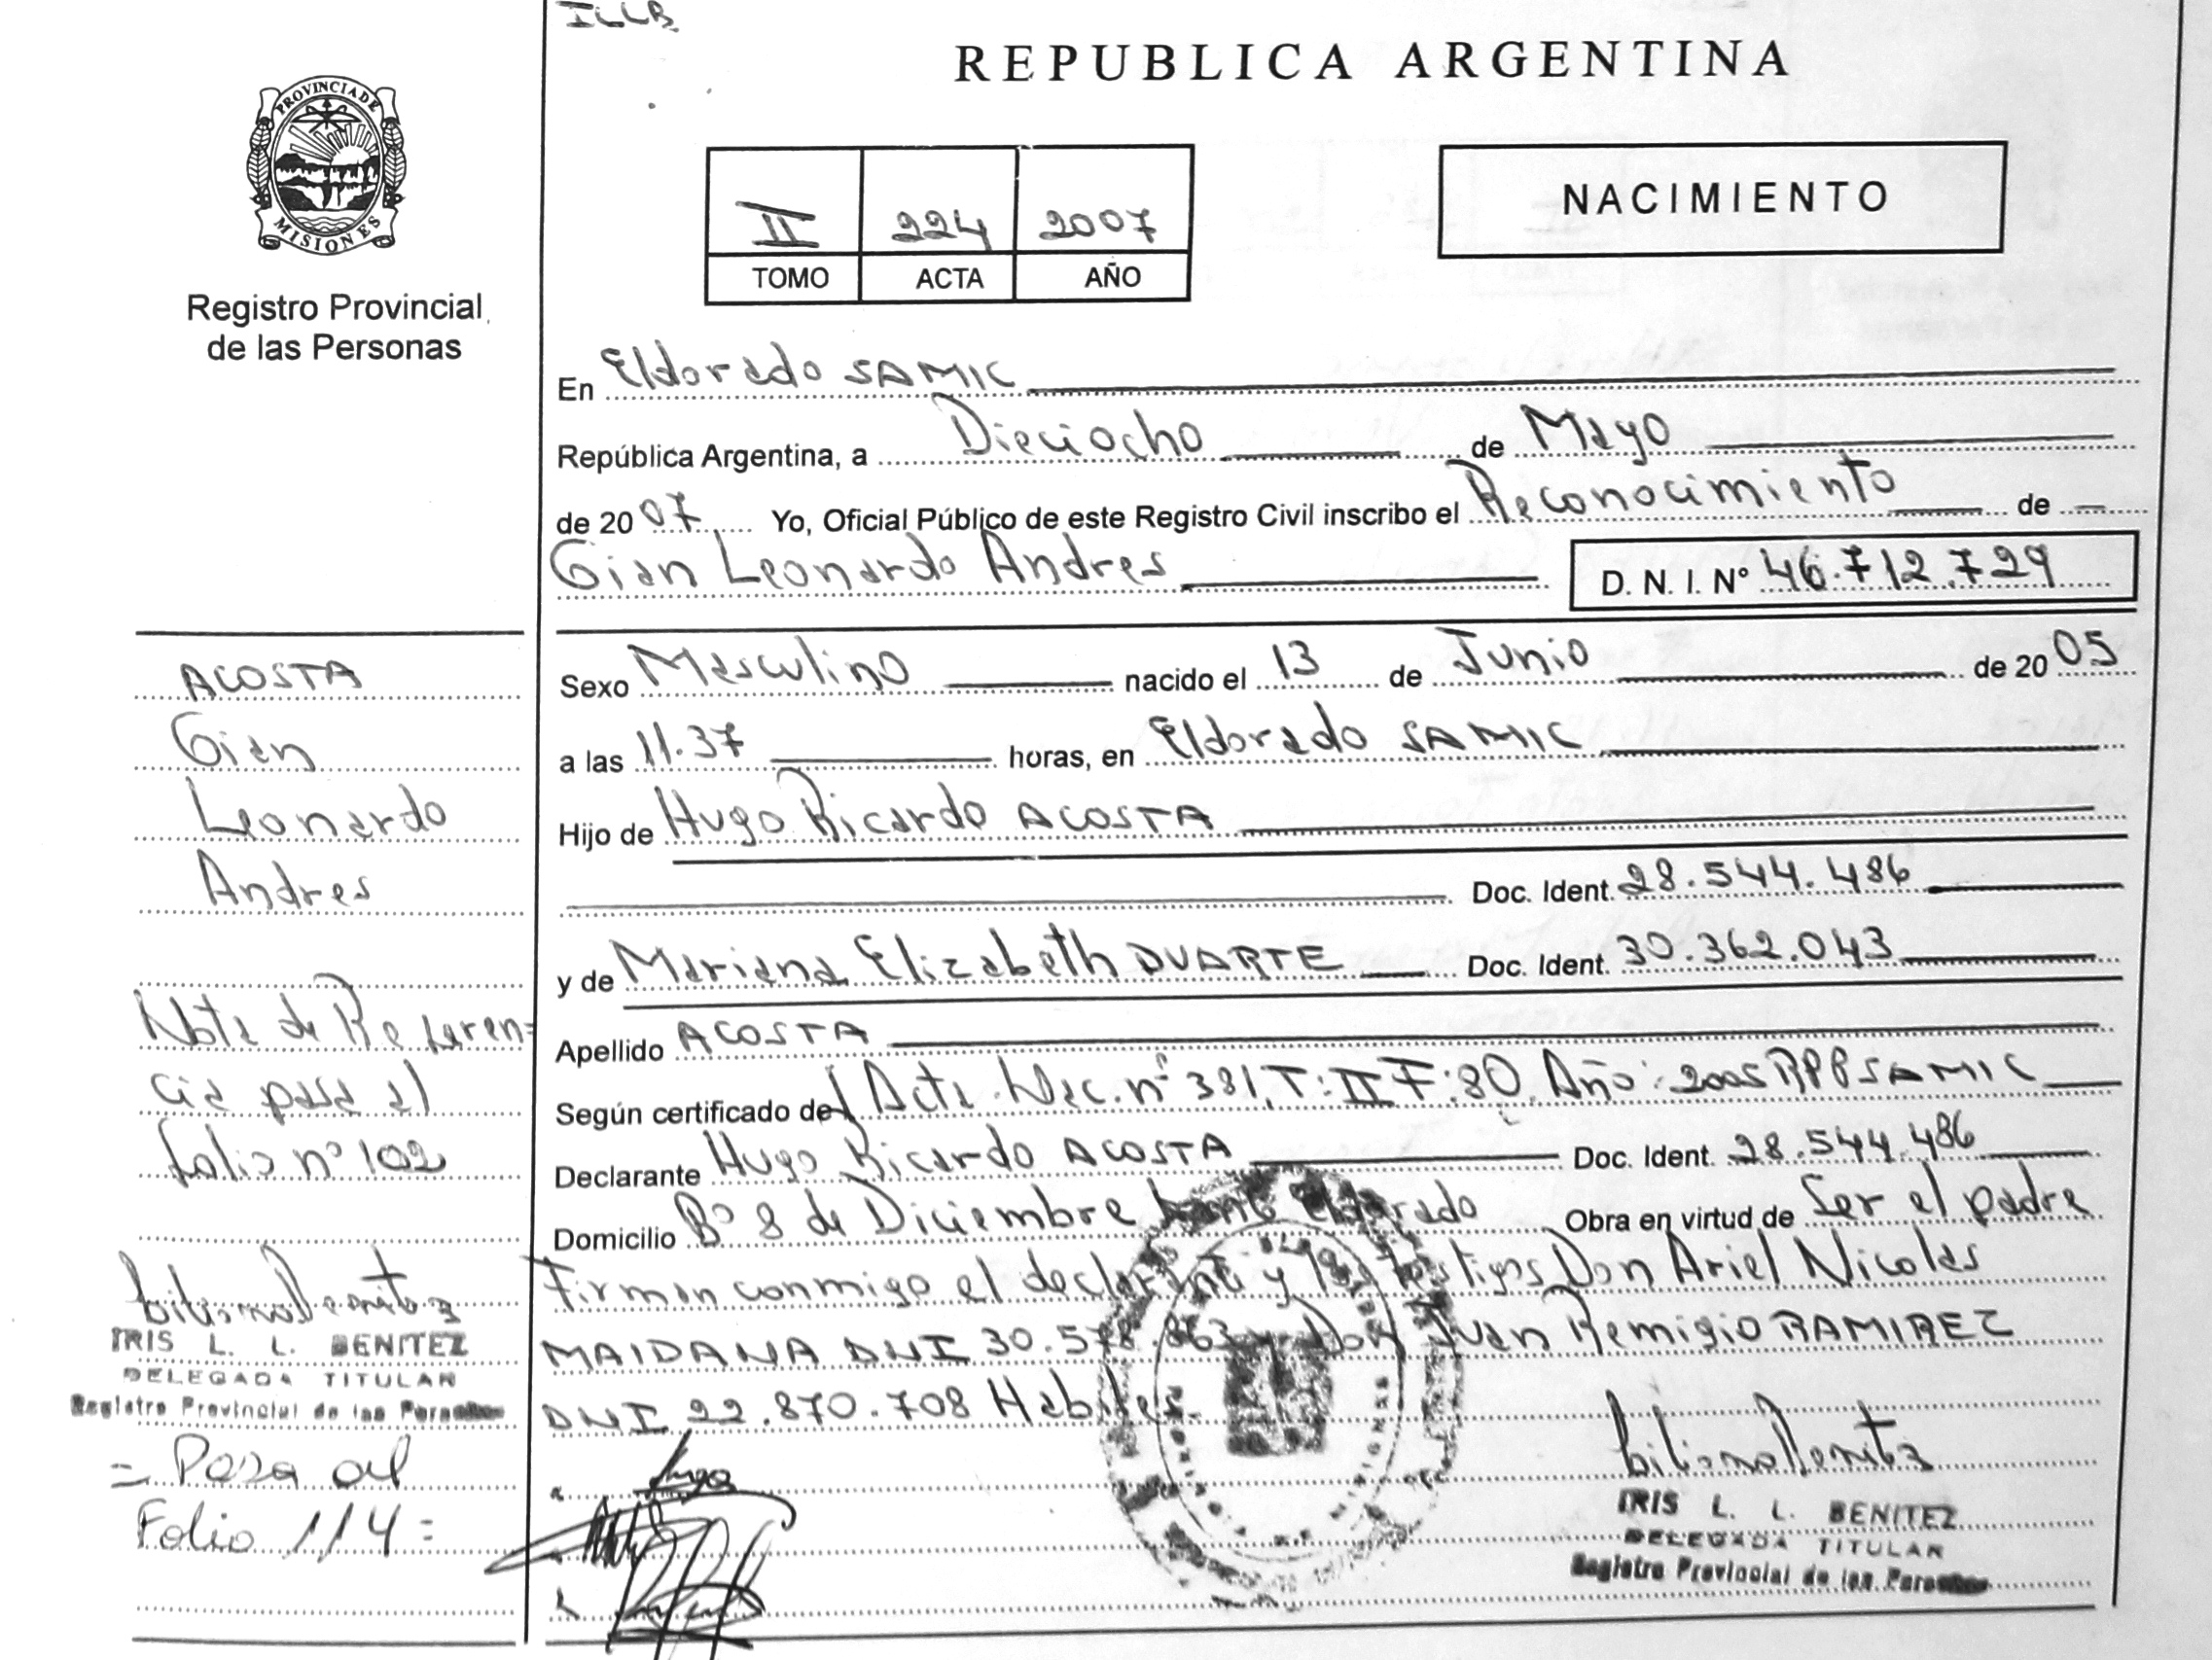 ILLB
REPUBLICA ARGENTINA
PROVINCIA DE
MISIONES
Registro Provincial
de las Personas
II 224 2007
TOMO ACTA AÑO
NACIMIENTO
En Eldorado SAMIC
República Argentina, a Dieciocho de Mayo
de 2007 Yo, Oficial Público de este Registro Civil inscribo el Reconocimiento de
Gian Leonardo Andres D. N. I. N° 46.712.729
Sexo Masculino nacido el 13 de Junio de 2005
a las 11.37 horas, en Eldorado SAMIC
Hijo de Hugo Ricardo ACOSTA
Doc. Ident. 28.544.486
y de Mariana Elizabeth DUARTE Doc. Ident. 30.362.043
Apellido ACOSTA
Según certificado de Acta Nac. n° 381, T: II F: 80 Año: 2005 RPP SAMIC
Declarante Hugo Ricardo ACOSTA Doc. Ident. 28.544.486
Domicilio B° 8 de Diciembre Eldorado Obra en virtud de Ser el padre
Firman conmigo el declarante y los testigos Don Ariel Nicolas
MAIDANA DNI 30.578.863 y Don Juan Remigio RAMIREZ
DNI 22.870.708 Habiles
IRIS L. L. BENITEZ
DELEGADA TITULAR
Registro Provincial de las Personas
ACOSTA
Gian
Leonardo
Andres
Nota de Referen=
cia pasa al
folio n° 102
IRIS L. L. BENITEZ
DELEGADA TITULAR
Registro Provincial de las Personas
= Pasa al
Folio 114 =